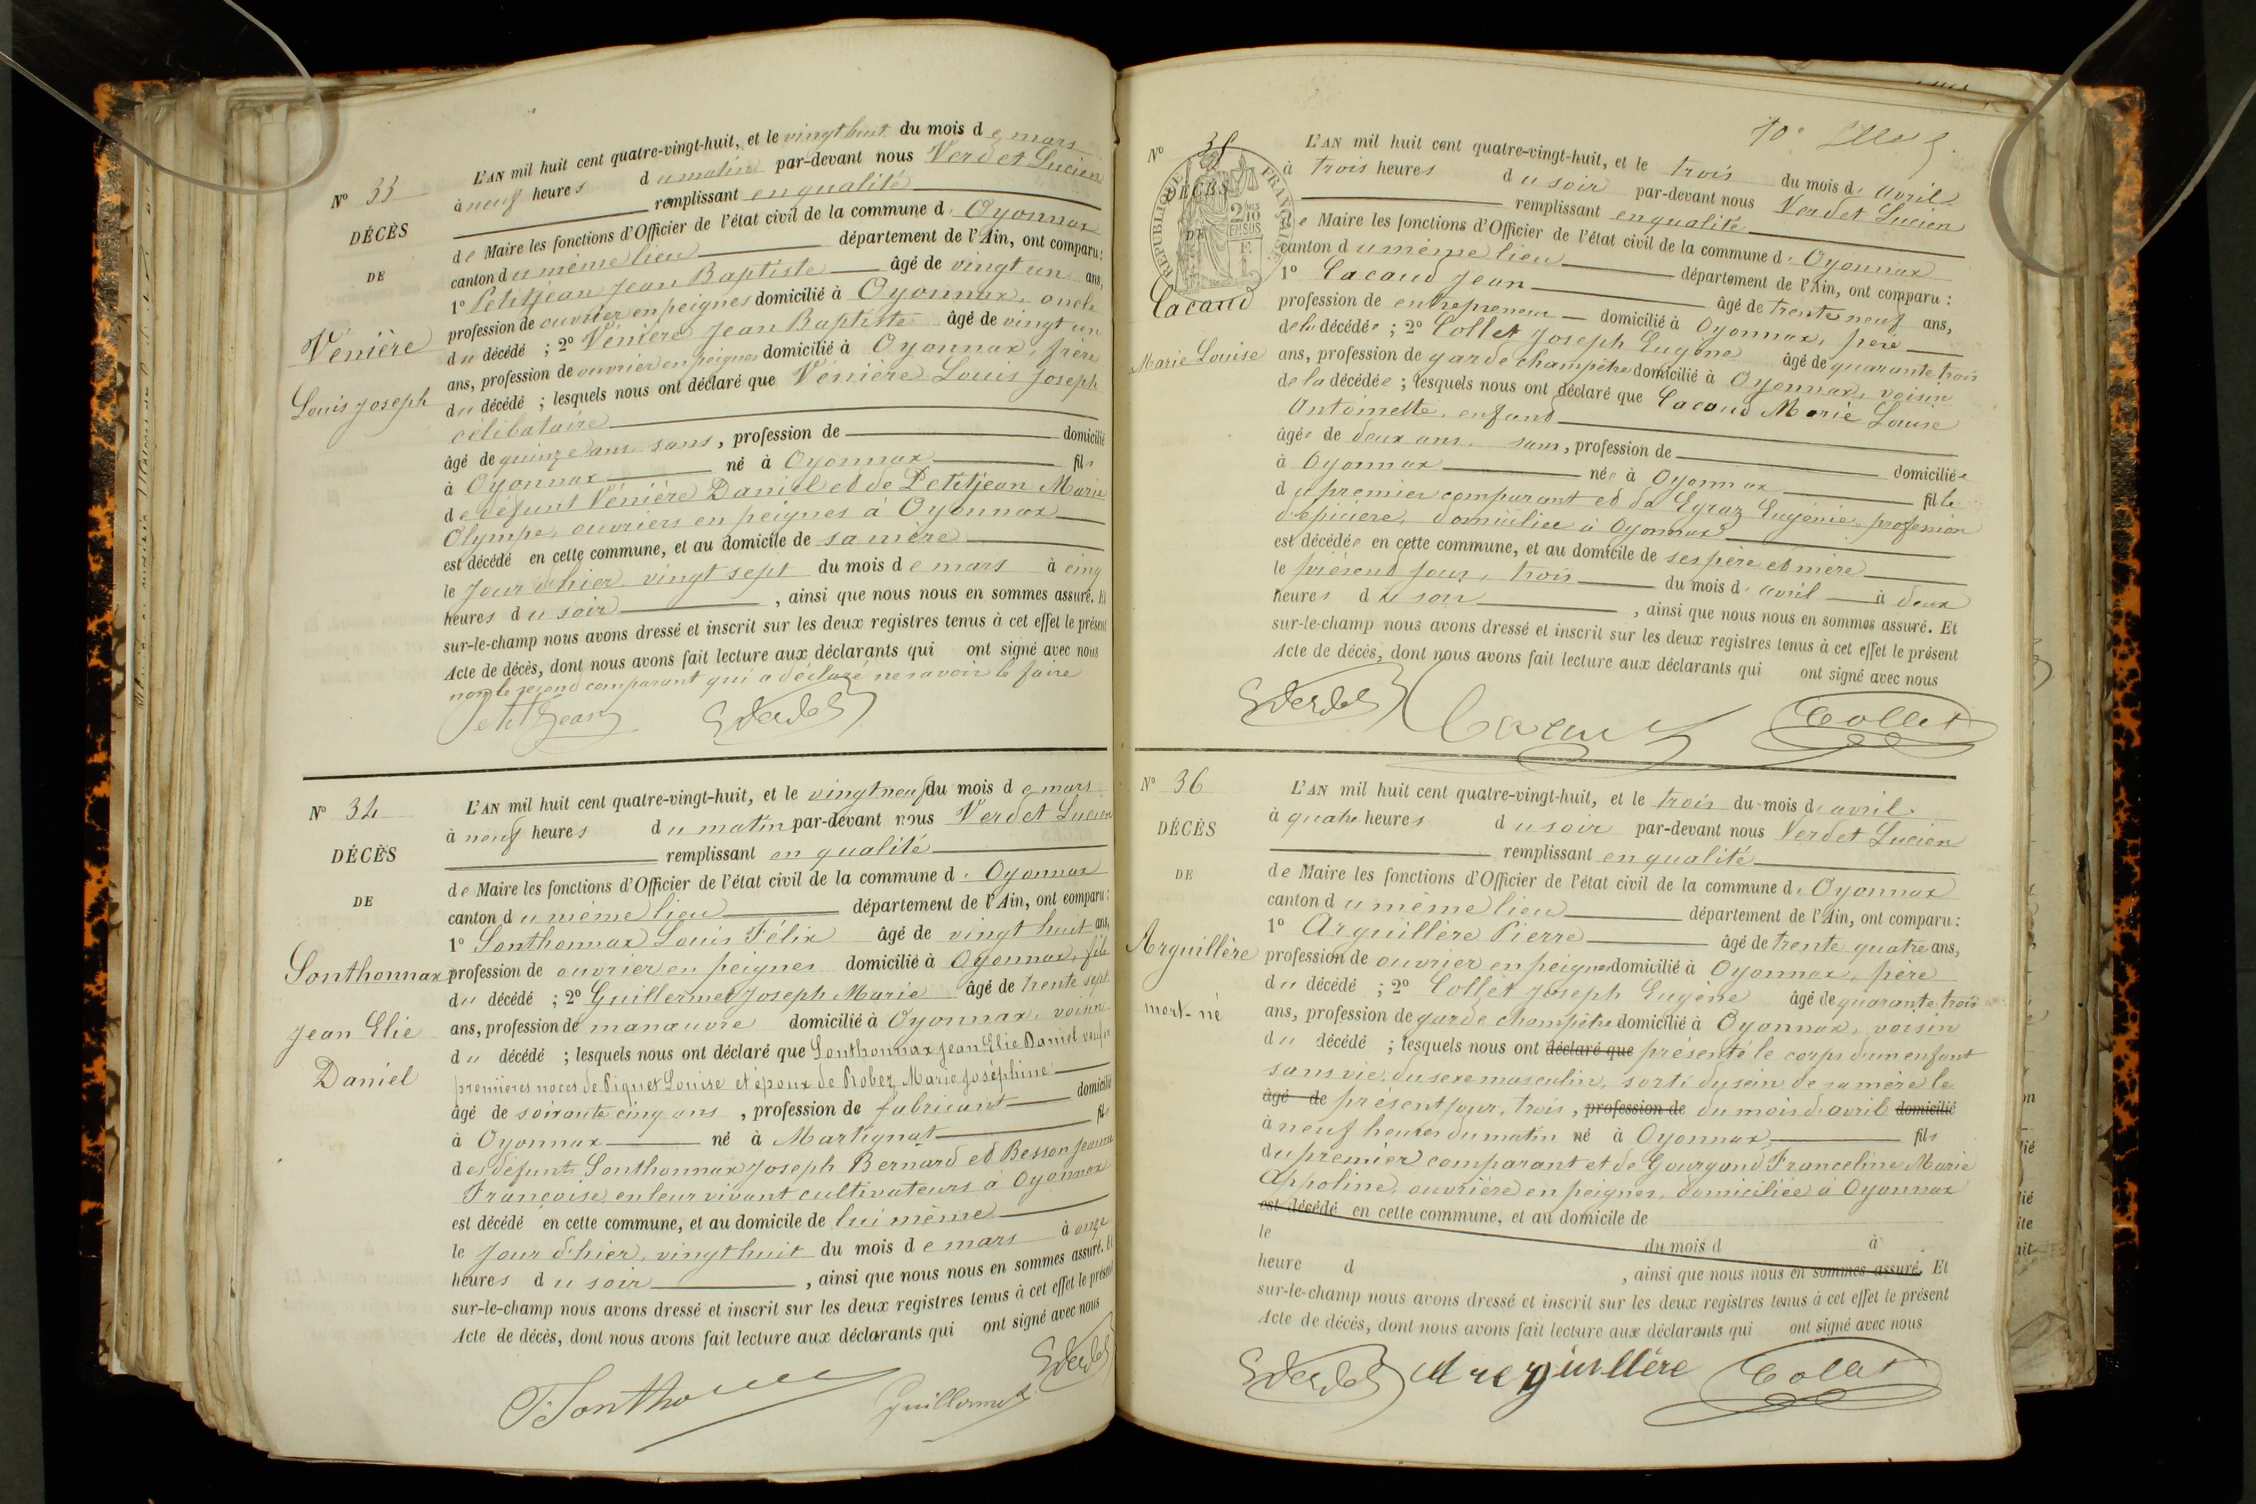 N° 33
DÉCÈS
DE
Vénière
Louis Joseph
L'AN mil huit cent quatre-vingt-huit, et le vingt huit du mois de mars
à neuf heures du matin par-devant nous Verdet Lucien
remplissant en qualité
de Maire les fonctions d'Officier de l'état civil de la commune d'Oyonnax
canton du même lieu département de l'Ain, ont comparu :
1° Petitjean Jean Baptiste âgé de vingt un ans,
profession de ouvrier en peignes domicilié à Oyonnax, oncle
du décédé ; 2° Vénière Jean Baptiste âgé de vingt un
ans, profession de ouvrier en peignes domicilié à Oyonnax, frère
du décédé ; lesquels nous ont déclaré que Vénière Louis Joseph
célibataire
âgé de quinze ans sans, profession de domicilié
à Oyonnax né à Oyonnax fils
de défunt Vénière Daniel et de Petitjean Marie
Olympe, ouvriers en peignes à Oyonnax
est décédé en cette commune, et au domicile de sa mère
le jour d'hier vingt sept du mois de mars à cinq
heures du soir, ainsi que nous nous en sommes assuré. Et
sur-le-champ nous avons dressé et inscrit sur les deux registres tenus à cet effet le présent
Acte de décès, dont nous avons fait lecture aux déclarants qui ont signé avec nous
non le second comparant qui a déclaré ne savoir le faire
Petitjean Verdet
N° 34
DÉCÈS
DE
Sonthonnax
Jean Elie
Daniel
L'AN mil huit cent quatre-vingt-huit, et le vingt neuf du mois de mars
à neuf heures du matin par-devant nous Verdet Lucien
remplissant en qualité
de Maire les fonctions d'Officier de l'état civil de la commune d'Oyonnax
canton du même lieu département de l'Ain, ont comparu :
1° Sonthonnax Louis Félix âgé de vingt huit ans,
profession de ouvrier en peignes domicilié à Oyonnax, fils
du décédé ; 2° Guillermet Joseph Marie âgé de trente sept
ans, profession de manœuvre domicilié à Oyonnax, voisin
du décédé ; lesquels nous ont déclaré que Sonthonnax Jean Elie Daniel veuf en
premières noces de Piquet Louise et époux de Robez Marie Joséphine
âgé de soixante cinq ans, profession de fabricant domicilié
à Oyonnax né à Martignat fils
des défunts Sonthonnax Joseph Bernard et Besson Jeanne
Françoise, en leur vivant cultivateurs à Oyonnax
est décédé en cette commune, et au domicile de lui même
le jour d'hier, vingt huit du mois de mars à onze
heures du soir, ainsi que nous nous en sommes assuré. Et
sur-le-champ nous avons dressé et inscrit sur les deux registres tenus à cet effet le présent
Acte de décès, dont nous avons fait lecture aux déclarants qui ont signé avec nous
Verdet
F. Sonthonnax Guillermet
10e
N° 35
DÉCÈS
DE
RÉPUBLIQUE FRANÇAISE
2 DMES 10
EN SUS
Cacaud
Marie Louise
L'AN mil huit cent quatre-vingt-huit, et le trois du mois d'avril
à trois heures du soir par-devant nous Verdet Lucien
remplissant en qualité
de Maire les fonctions d'Officier de l'état civil de la commune d'Oyonnax
canton du même lieu département de l'Ain, ont comparu :
1° Cacaud Jean âgé de trente neuf ans,
profession de entrepreneur domicilié à Oyonnax, père
de la décédée ; 2° Collet Joseph Eugène âgé de quarante trois
ans, profession de garde champêtre domicilié à Oyonnax, voisin
de la décédée ; lesquels nous ont déclaré que Cacaud Marie Louise
Antoinette, enfant
âgée de deux ans, sans, profession de domiciliée
à Oyonnax née à Oyonnax fille
du premier comparant et de Eyraz Eugénie, profession
d'épicière, domiciliée à Oyonnax
est décédée en cette commune, et au domicile de ses père et mère
le présent jour, trois du mois d'avril à deux
heures du soir, ainsi que nous nous en sommes assuré. Et
sur-le-champ nous avons dressé et inscrit sur les deux registres tenus à cet effet le présent
Acte de décès, dont nous avons fait lecture aux déclarants qui ont signé avec nous
Verdet Cacaud Collet
N° 36
DÉCÈS
DE
Arguillère
mort-né
L'AN mil huit cent quatre-vingt-huit, et le trois du mois d'avril
à quatre heures du soir par-devant nous Verdet Lucien
remplissant en qualité
de Maire les fonctions d'Officier de l'état civil de la commune d'Oyonnax
canton du même lieu département de l'Ain, ont comparu :
1° Arguillère Pierre âgé de trente quatre ans,
profession de ouvrier en peignes domicilié à Oyonnax, père
du décédé ; 2° Collet Joseph Eugène âgé de quarante trois
ans, profession de garde champêtre domicilié à Oyonnax, voisin
du décédé ; lesquels nous ont déclaré que présenté le corps d'un enfant
sans vie, du sexe masculin, sorti du sein de sa mère le
âgé de présent jour, trois, profession de du mois d'avril domicilié
à neuf heures du matin né à Oyonnax fils
du premier comparant et de Gourgand Franceline Marie
Appoline, ouvrière en peignes, domiciliée à Oyonnax
est décédé en cette commune, et au domicile de
le du mois d à
heure d, ainsi que nous nous en sommes assuré. Et
sur-le-champ nous avons dressé et inscrit sur les deux registres tenus à cet effet le présent
Acte de décès, dont nous avons fait lecture aux déclarants qui ont signé avec nous
Verdet Arguillère Collet